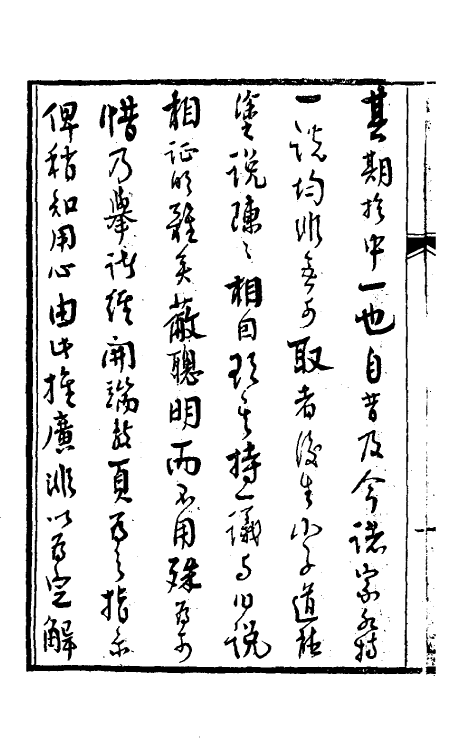 其期於中一也自昔及今諸家各持
一說均非無可取者後生小子道聽
塗說陳陳相因現其持一議與旧說
相証明難矣蔽聰明而不用殊為可
惜乃舉諸經開端數頁為之指示
俾稍知用心由此推廣非以為定解